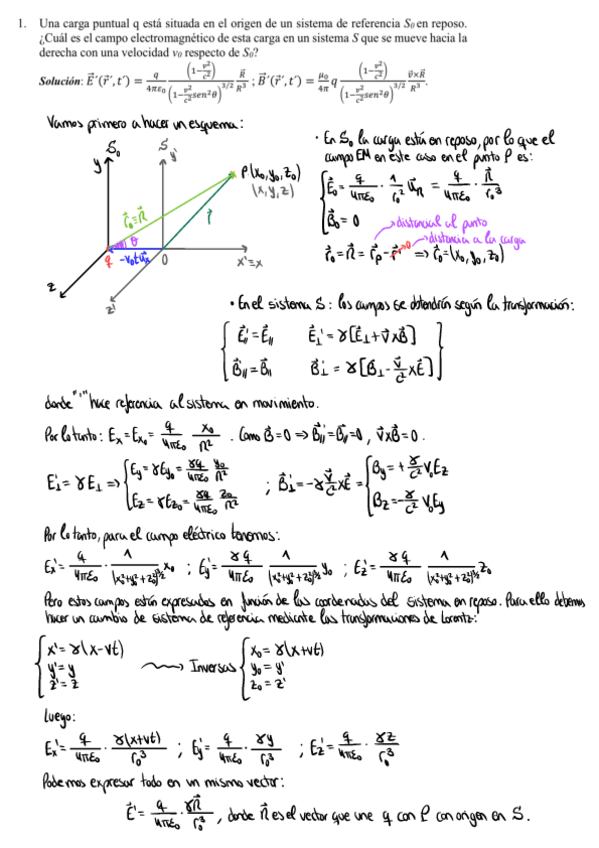 1. Una carga puntual q está situada en el origen de un sistema de referencia S₀ en reposo.
¿Cuál es el campo electromagnético de esta carga en un sistema S que se mueve hacia la
derecha con una velocidad v₀ respecto de S₀?
Solución: E⃗´(r⃗´, t´) = q/(4πε₀) (1−v²/c²)/(1−v²/c² sen²θ)^{3/2} R⃗/R³ ; B⃗´(r⃗´, t´) = μ₀/4π q (1−v²/c²)/(1−v²/c² sen²θ)^{3/2} (v⃗×R⃗)/R³.
Vamos primero a hacer un esquema:
S₀ S
y y'
P(x₀,y₀,z₀)
(x,y,z)
r⃗₀=R⃗
r⃗
θ
q -v₀tu⃗ₓ 0 x'=x
z z'
· En S₀ la carga está en reposo, por lo que el
campo EM en este caso en el punto P es:
E⃗₀ = q/(4πε₀) · 1/r₀² u⃗_R = q/(4πε₀) · R⃗/r₀³
B⃗₀ = 0
distancia al punto
distancia a la carga
r⃗₀=R⃗ = r⃗p - r⃗'⁰ => r⃗₀=(x₀, y₀, z₀)
· En el sistema S: los campos se obtendrán según la transformación:
E⃗'∥=E⃗∥ E⃗⊥' = γ[E⃗⊥+v⃗xB⃗]
B⃗'∥=B⃗∥ B⃗⊥' = γ[B⃗⊥ - v⃗/c² xE⃗]
donde "'" hace referencia al sistema en movimiento.
Por lo tanto: Eₓ=Eₓ₀ = q/(4πε₀) x₀/R² . Como B⃗=0 => B⃗'∥=B⃗∥=0 , v⃗xB⃗=0 .
E⃗⊥' = γE⊥ => Ey=γEy₀ = γq/(4πε₀) y₀/R² ; B⃗⊥'=-γ v⃗/c² xE⃗ = By=+ γ/c² V₀Ez
Ez=γEz₀ = γq/(4πε₀) z₀/R² Bz=- γ/c² V₀Ey
Por lo tanto, para el campo eléctrico tenemos:
Eₓ' = q/(4πε₀) · 1/(x₀²+y₀²+z₀²)^{3/2} x₀ ; Ey' = γq/(4πε₀) 1/(x₀²+y₀²+z₀²)^{3/2} y₀ ; Ez' = γq/(4πε₀) 1/(x₀²+y₀²+z₀²)^{3/2} z₀
Pero estos campos están expresados en función de las coordenadas del sistema en reposo. Para ello debemos
hacer un cambio de sistema de referencia mediante las transformaciones de Lorentz:
x' = γ(x-vt) x₀ = γ(x+vt)
y' = y Inversas y₀ = y'
z' = z z₀ = z'
Luego:
Eₓ' = q/(4πε₀) · γ(x+vt)/r₀³ ; Ey' = q/(4πε₀) · γy/r₀³ ; Ez' = q/(4πε₀) · γz/r₀³
Podemos expresar todo en un mismo vector:
E⃗' = q/(4πε₀) · γR⃗/r₀³ , donde R⃗ es el vector que une q con P con origen en S.